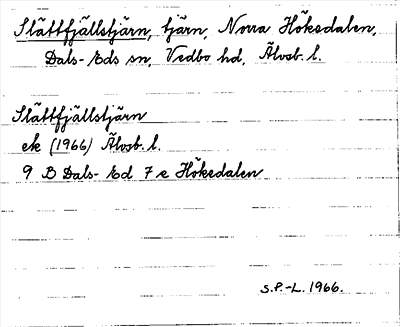 Slättfjällstjärn, tjärn, Norra Höksdalen,
Dals-Eds sn, Vedbo hd, Älvsb. l.
Slättfjällstjärn
ek (1966) Älvsb. l.
9 B Dals-Ed 7 e Höksdalen
S.P.-L. 1966.